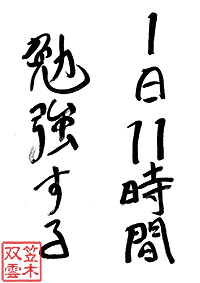 1日11時間
勉強する
笠木
双雲